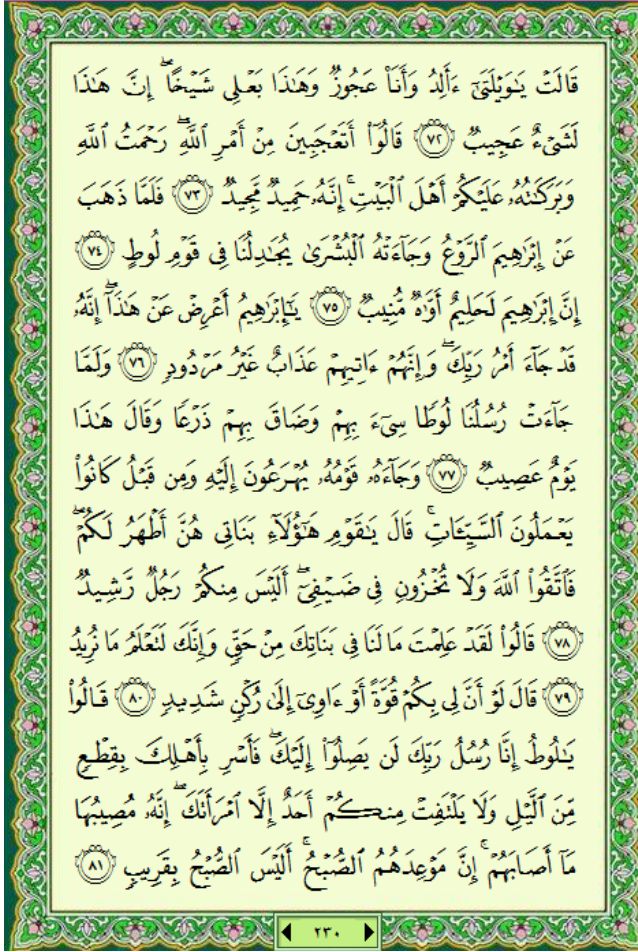 قَالَتْ يَٰوَيْلَتَىٰٓ ءَأَلِدُ وَأَنَا۠ عَجُوزٌ وَهَٰذَا بَعْلِى شَيْخًا ۖ إِنَّ هَٰذَا
لَشَىْءٌ عَجِيبٌ ٧٢ قَالُوٓا۟ أَتَعْجَبِينَ مِنْ أَمْرِ ٱللَّهِ ۖ رَحْمَتُ ٱللَّهِ
وَبَرَكَٰتُهُۥ عَلَيْكُمْ أَهْلَ ٱلْبَيْتِ ۚ إِنَّهُۥ حَمِيدٌ مَّجِيدٌ ٧٣ فَلَمَّا ذَهَبَ
عَنْ إِبْرَٰهِيمَ ٱلرَّوْعُ وَجَآءَتْهُ ٱلْبُشْرَىٰ يُجَٰدِلُنَا فِى قَوْمِ لُوطٍ ٧٤
إِنَّ إِبْرَٰهِيمَ لَحَلِيمٌ أَوَّٰهٌ مُّنِيبٌ ٧٥ يَٰٓإِبْرَٰهِيمُ أَعْرِضْ عَنْ هَٰذَآ ۖ إِنَّهُۥ
قَدْ جَآءَ أَمْرُ رَبِّكَ ۖ وَإِنَّهُمْ ءَاتِيهِمْ عَذَابٌ غَيْرُ مَرْدُودٍ ٧٦ وَلَمَّا
جَآءَتْ رُسُلُنَا لُوطًا سِىٓءَ بِهِمْ وَضَاقَ بِهِمْ ذَرْعًا وَقَالَ هَٰذَا
يَوْمٌ عَصِيبٌ ٧٧ وَجَآءَهُۥ قَوْمُهُۥ يُهْرَعُونَ إِلَيْهِ وَمِن قَبْلُ كَانُوا۟
يَعْمَلُونَ ٱلسَّيِّـَٔاتِ ۚ قَالَ يَٰقَوْمِ هَٰٓؤُلَآءِ بَنَاتِى هُنَّ أَطْهَرُ لَكُمْ ۖ
فَٱتَّقُوا۟ ٱللَّهَ وَلَا تُخْزُونِ فِى ضَيْفِىٓ ۖ أَلَيْسَ مِنكُمْ رَجُلٌ رَّشِيدٌ
٧٨ قَالُوا۟ لَقَدْ عَلِمْتَ مَا لَنَا فِى بَنَاتِكَ مِنْ حَقٍّ وَإِنَّكَ لَتَعْلَمُ مَا نُرِيدُ
٧٩ قَالَ لَوْ أَنَّ لِى بِكُمْ قُوَّةً أَوْ ءَاوِىٓ إِلَىٰ رُكْنٍ شَدِيدٍ ٨٠ قَالُوا۟
يَٰلُوطُ إِنَّا رُسُلُ رَبِّكَ لَن يَصِلُوٓا۟ إِلَيْكَ ۖ فَأَسْرِ بِأَهْلِكَ بِقِطْعٍ
مِّنَ ٱلَّيْلِ وَلَا يَلْتَفِتْ مِنكُمْ أَحَدٌ إِلَّا ٱمْرَأَتَكَ ۖ إِنَّهُۥ مُصِيبُهَا
مَآ أَصَابَهُمْ ۚ إِنَّ مَوْعِدَهُمُ ٱلصُّبْحُ ۚ أَلَيْسَ ٱلصُّبْحُ بِقَرِيبٍ ٨١
٢٣٠